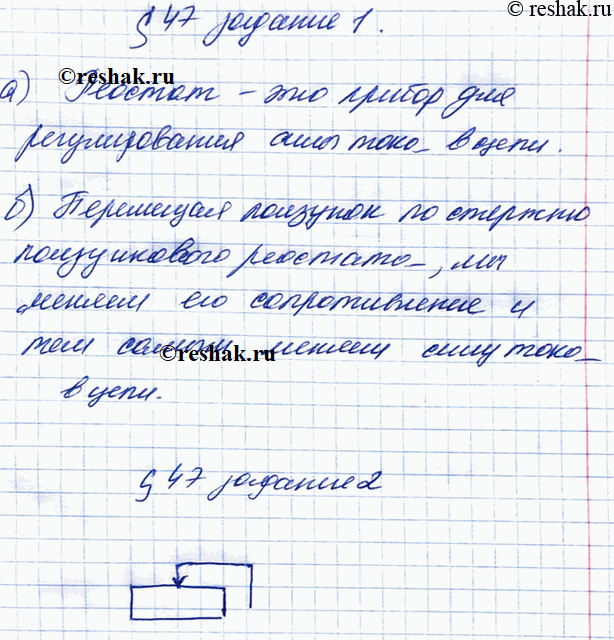 © reshak.ru
§ 47 задание 1.
©reshak.ru
а) Реостат – это прибор для
регулирования силы тока в цепи.
б) Перемещая ползунок по стержню
ползункового реостата, мы
меняем его сопротивление и
тем самым меняем силу тока
©reshak.ru
в цепи.
§ 47 задание 2